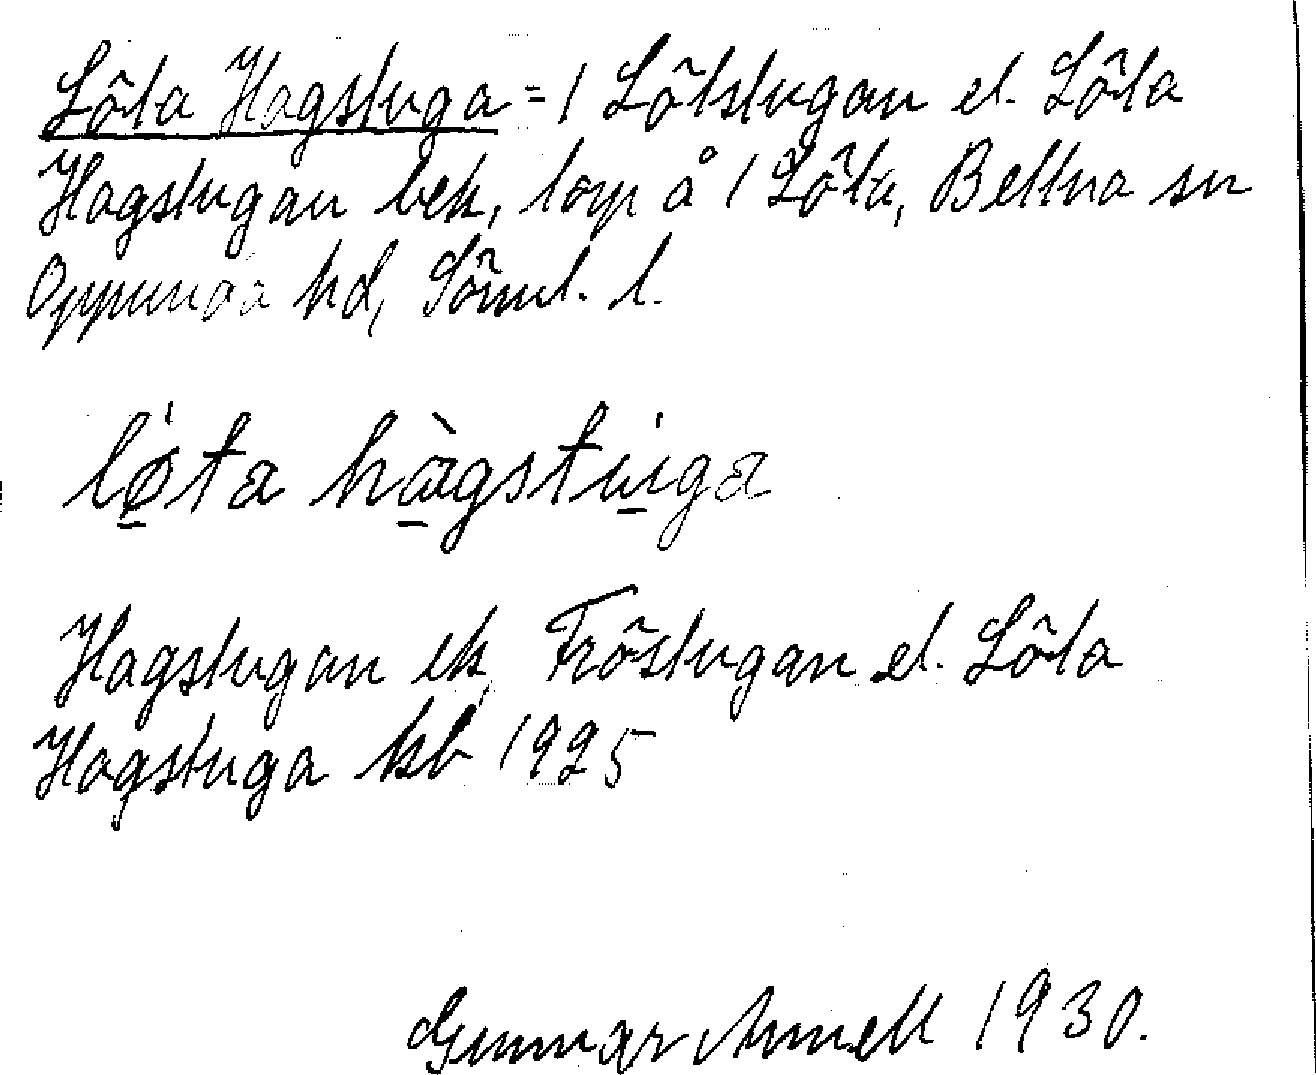 Löta Hagstuga = 1 Lötstugan el. Löta
Hagstugan bek, torp å 1 Löta, Bettna sn
Oppunda hd, Söml. l.
lǿ̱ta hà̱gstu̱ga
Hagstugan ek, Fröstugan el. Löta
Hagstuga kb 1925
Gunnar Annell 1930.